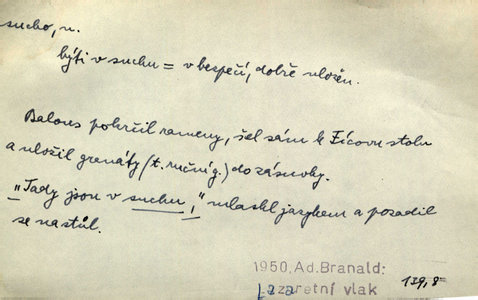 sucho, n.
býti v suchu = v bezpečí, dobře uložen.
Balous pokrčil rameny, šel sám k Fícovu stolu
a uložil granáty (t. ruční g.) do zásuvky.
"Tady jsou v suchu," mlaskl jazykem a posadil
se na stůl.
1950, Ad. Branald:
Lazaretní vlak
139, 8